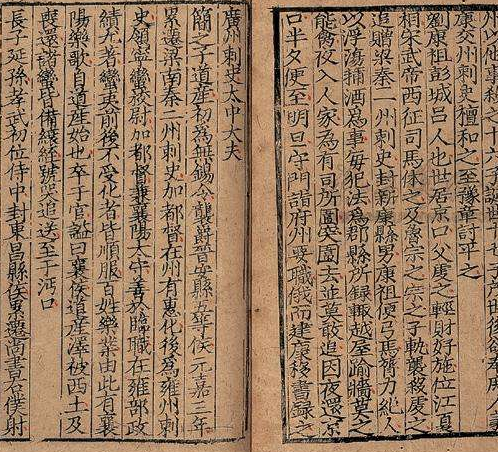 康交州刺史檀和之至豫章討平之
劉康祖彭城呂人也世居京口父虔之輕財好施位江夏
相宋武帝西征司馬休之及魯宗之宗之子軌襲殺虔之
追贈梁秦二州刺史封新康縣男康祖便弓馬膂力絕人
以浮蕩蒱酒為事每犯法為郡縣所錄輒越屋踰牆莫之
能禽夜入人家為有司所圍突圍去並莫敢追因夜還京
口半夕便至明旦守門詣府州要職俄而建康移書錄之
廣州刺史太中大夫
簡之子道產初為無錫令襲爵晉安縣五等侯元嘉三年
累遷梁南秦二州刺史加都督在州有惠化後為雍州刺
史領寧蠻校尉加都督兼襄陽太守善於臨職在雍部政
績尤著蠻夷前後不受化者皆順服百姓樂業由此有襄
陽樂歌自道產始也卒于官諡曰襄侯道產澤被西土及
喪還諸蠻皆備縗絰號哭追送至于沔口
長子延孫孝武初位侍中封東昌縣侯累遷尚書右僕射